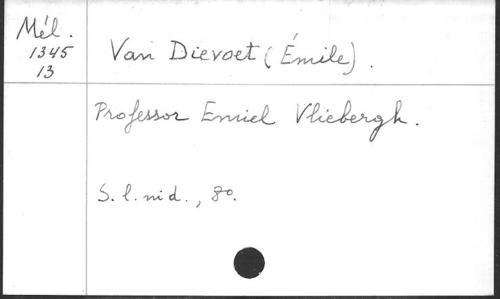 Mél.
1345
13
Van Dievoet (Émile).
Professor Emiel Vliebergh.
S. l. ni d., 8o.